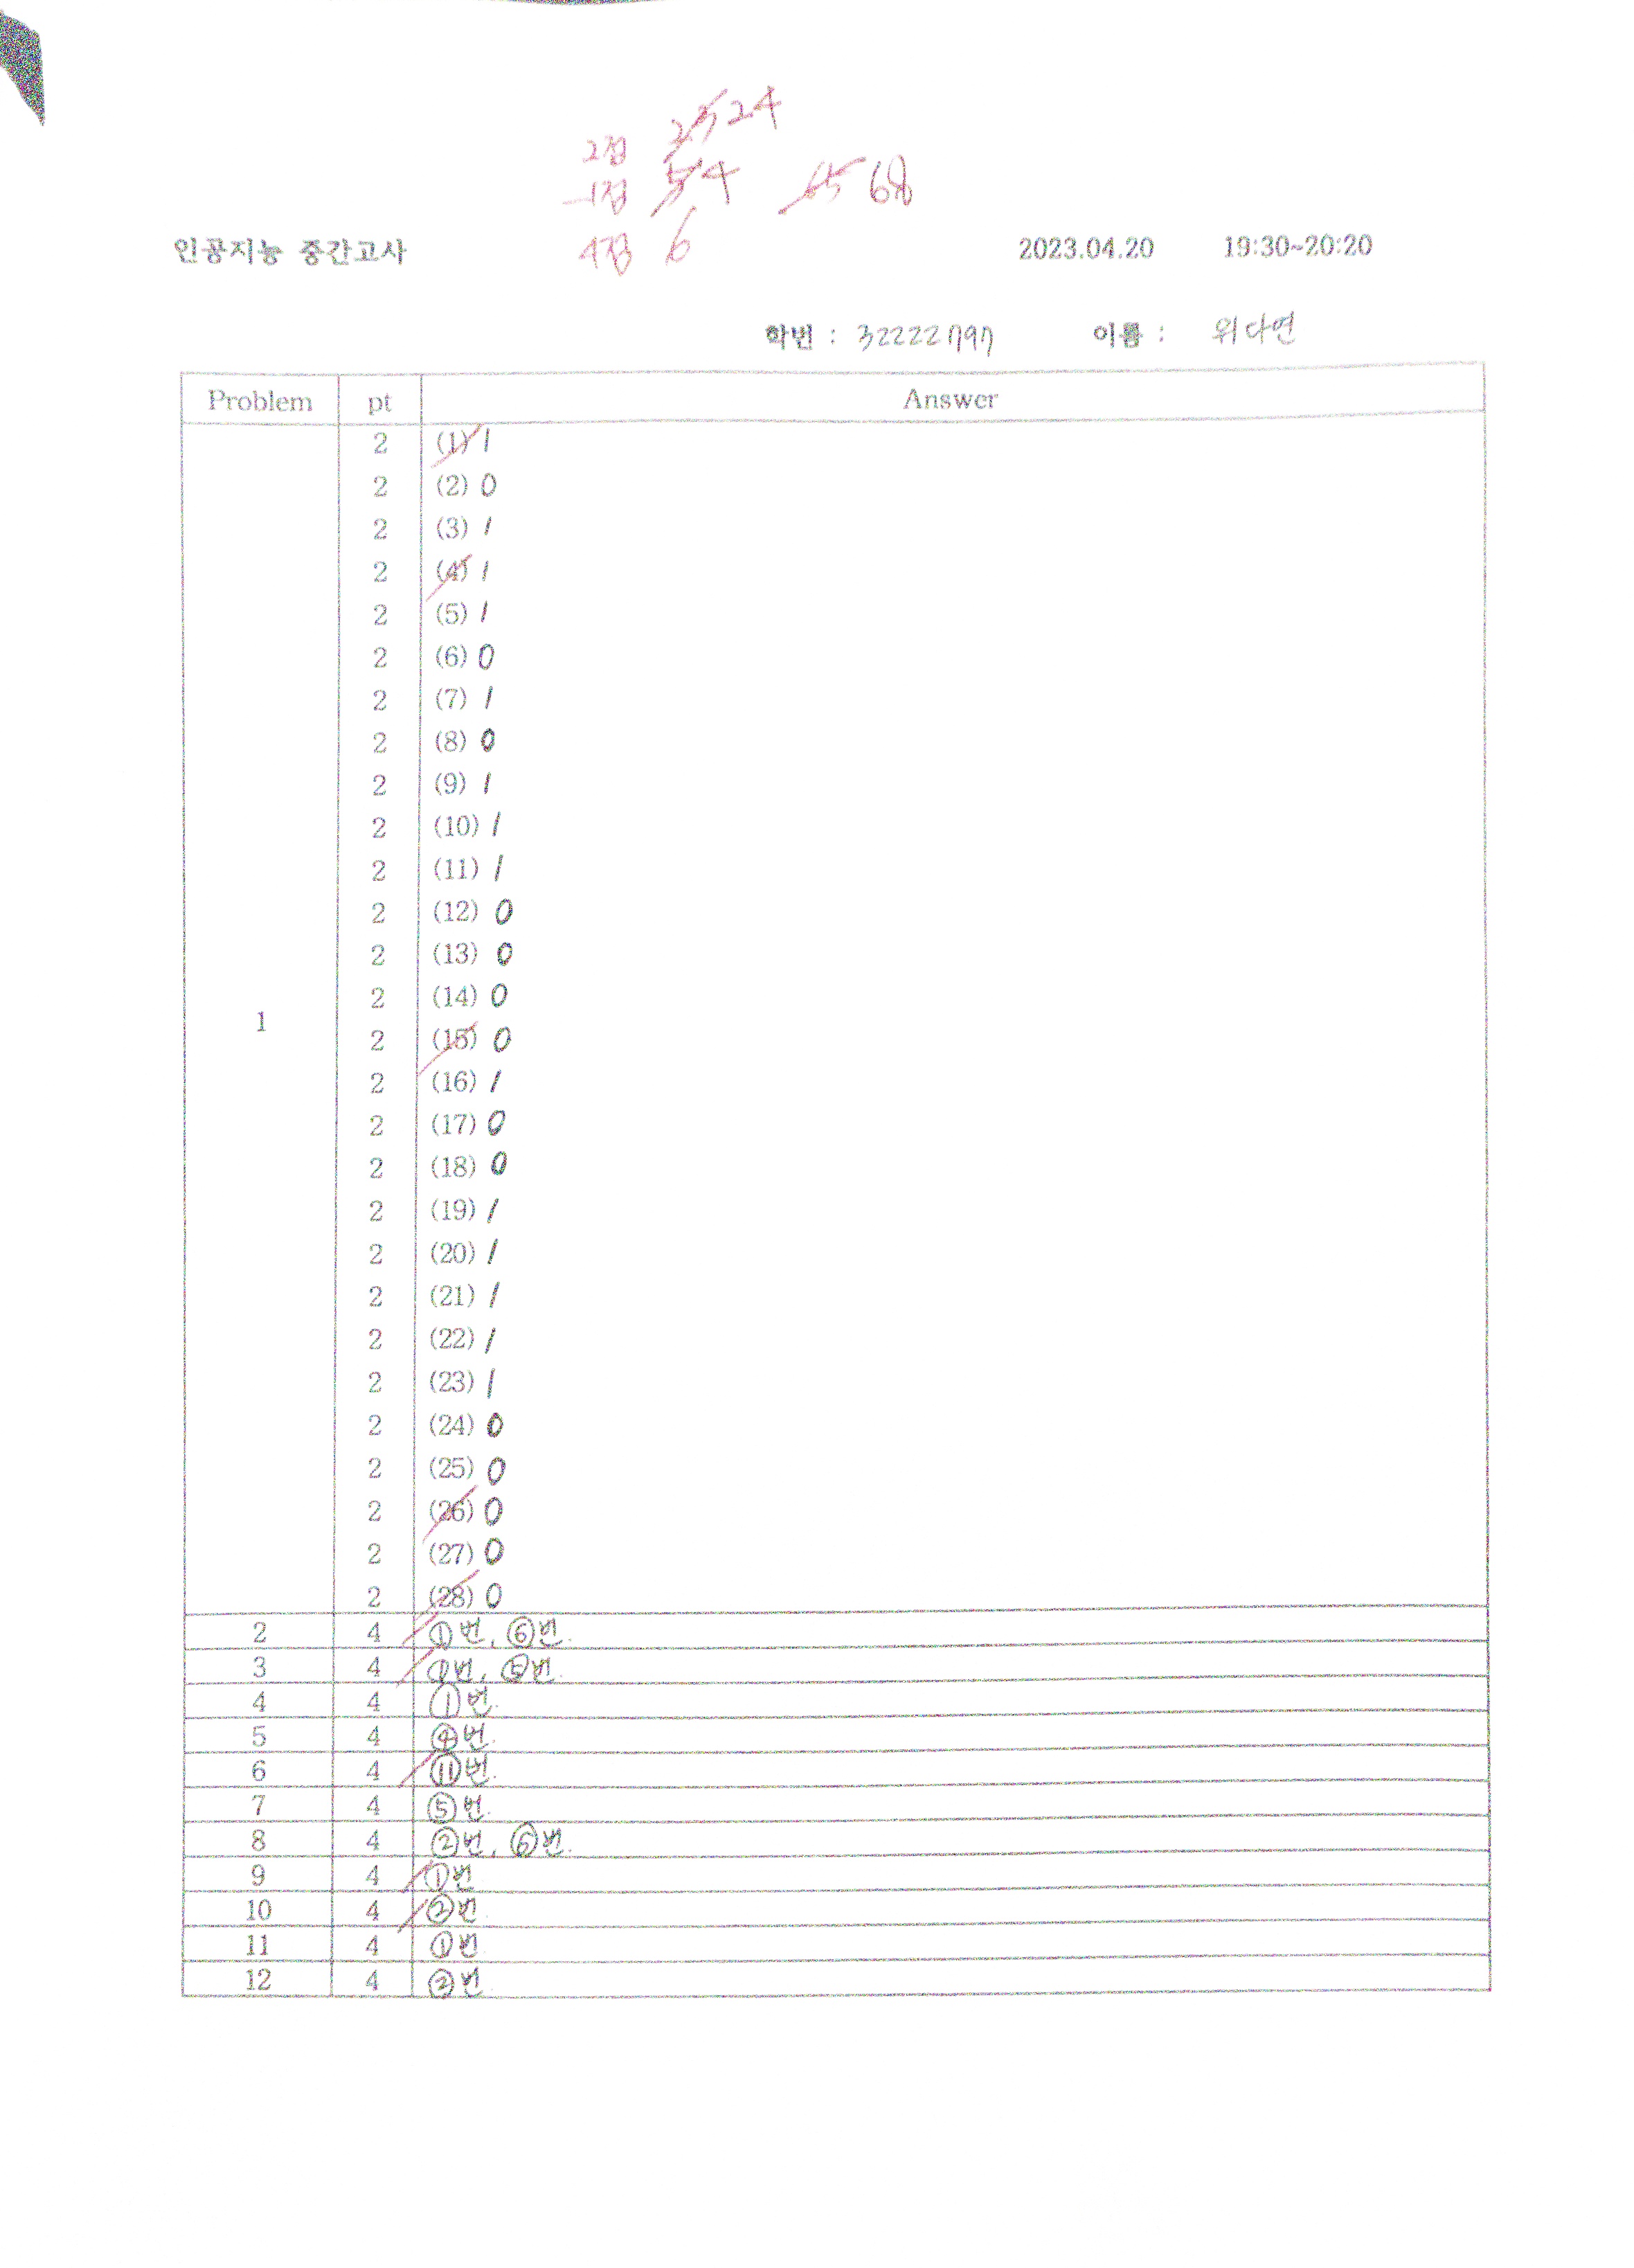 2점 25 24
-1점 5 4 65 68
4점 6
인공지능 중간고사 2023.04.20 19:30~20:20
학번 : 32222797 이름 : 위다연
Problem pt Answer
2 (1) 1
2 (2) 0
2 (3) 1
2 (4) 1
2 (5) 1
2 (6) 0
2 (7) 1
2 (8) 0
2 (9) 1
2 (10) 1
2 (11) 1
2 (12) 0
2 (13) 0
2 (14) 0
1 2 (15) 0
2 (16) 1
2 (17) 0
2 (18) 0
2 (19) 1
2 (20) 1
2 (21) 1
2 (22) 1
2 (23) 1
2 (24) 0
2 (25) 0
2 (26) 0
2 (27) 0
2 (28) 0
2 4 ①번, ⑥번.
3 4 ①번, ⑤번.
4 4 ①번.
5 4 ④번.
6 4 ⑪번.
7 4 ⑤번.
8 4 ②번, ⑥번.
9 4 ①번
10 4 ③번.
11 4 ①번
12 4 ③번.